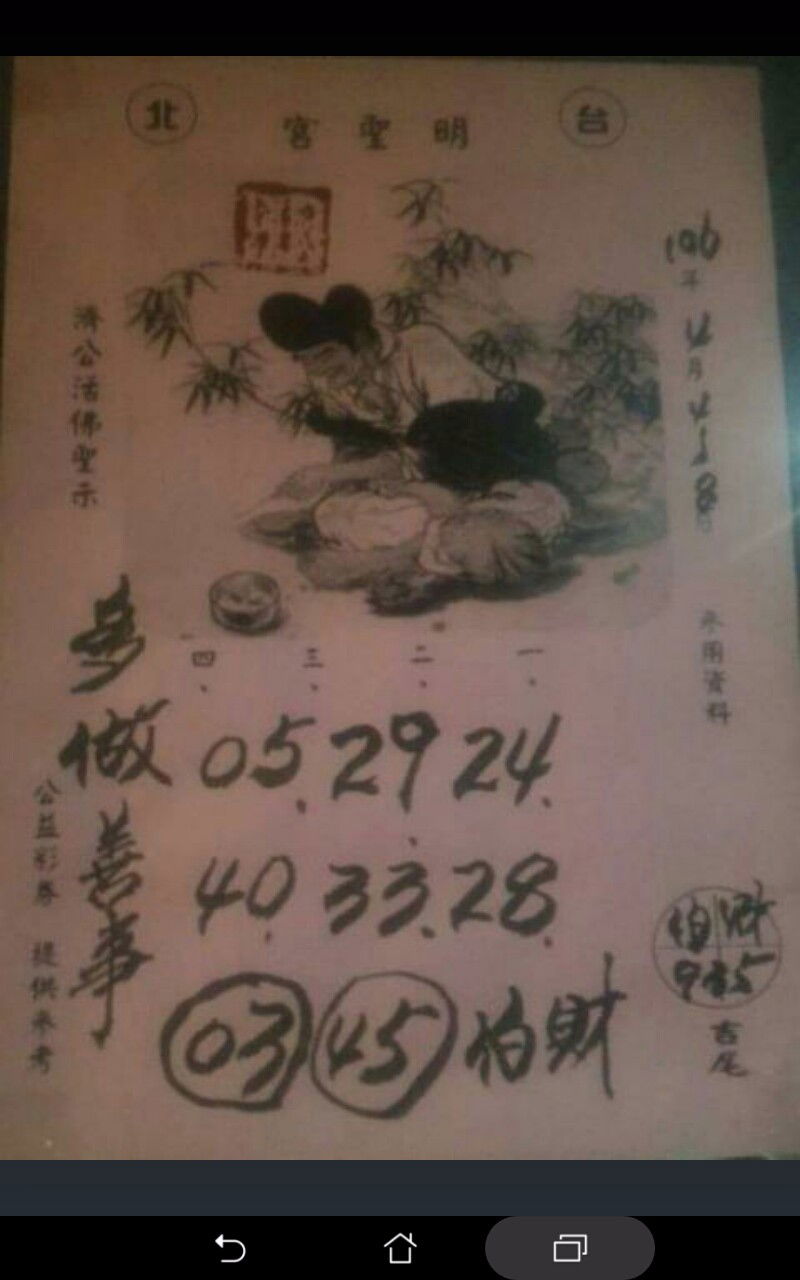 台 明聖宮 北
106年4月4 8
資料
濟公活佛聖示
一、二、三、四、
05.29 24.
40.33.28.
03 45 伯財
多做善事
公益彩券 提供參考
伯財
吉尾